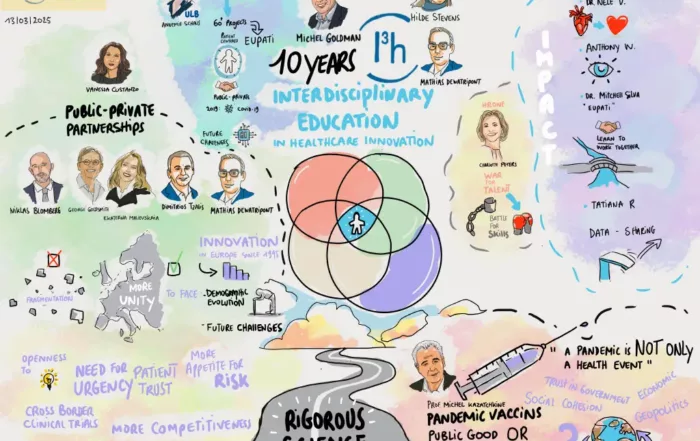 13/03/2025
ULB
60+ PROJECTS
EUPATI
PUBLIC-PRIVATE
2019: COVID-19
FUTURE
CHALLENGES
MICHEL GOLDMAN
10 YEARS
I³h
HILDE STEVENS
MATHIAS DEWATRIPONT
INTERDISCIPLINARY
EDUCATION
IN HEALTHCARE INNOVATION
VANESSA
PUBLIC-PRIVATE
PARTNERSHIPS
NIKLAS BLOMBERG
DIMITRIOS
MATHIAS DEWATRIPONT
FRAGMENTATION
MORE
UNITY
TO FACE
INNOVATION
IN EUROPE SINCE 1995
. DEMOGRAPHIC
EVOLUTION
. FUTURE CHALLENGES
OPENNESS
TO
NEED FOR
URGENCY
PATIENT
TRUST
MORE
APPETITE FOR
RISK
CROSS BORDER
CLINICAL TRIALS
MORE COMPETITIVENESS
RIGOROUS
SCIENCE
WAR
FOR
TALENT
BATTLE
FOR
SKILLS
IMPACT
DR NELE V.
ANTHONY W.
. DR. MITCHELL SILVA
"EUPATI"
LEARN TO
WORK TOGETHER
. TATIANA R
DATA - SHARING
PROF MICHEL KAZATCHKINE
PANDEMIC VACCINS
PUBLIC GOOD OR
?
" A PANDEMIC IS NOT ONLY
A HEALTH EVENT "
TRUST IN GOVERNMENT
SOCIAL COHESION
ECONOMIC
GEOPOLITICS